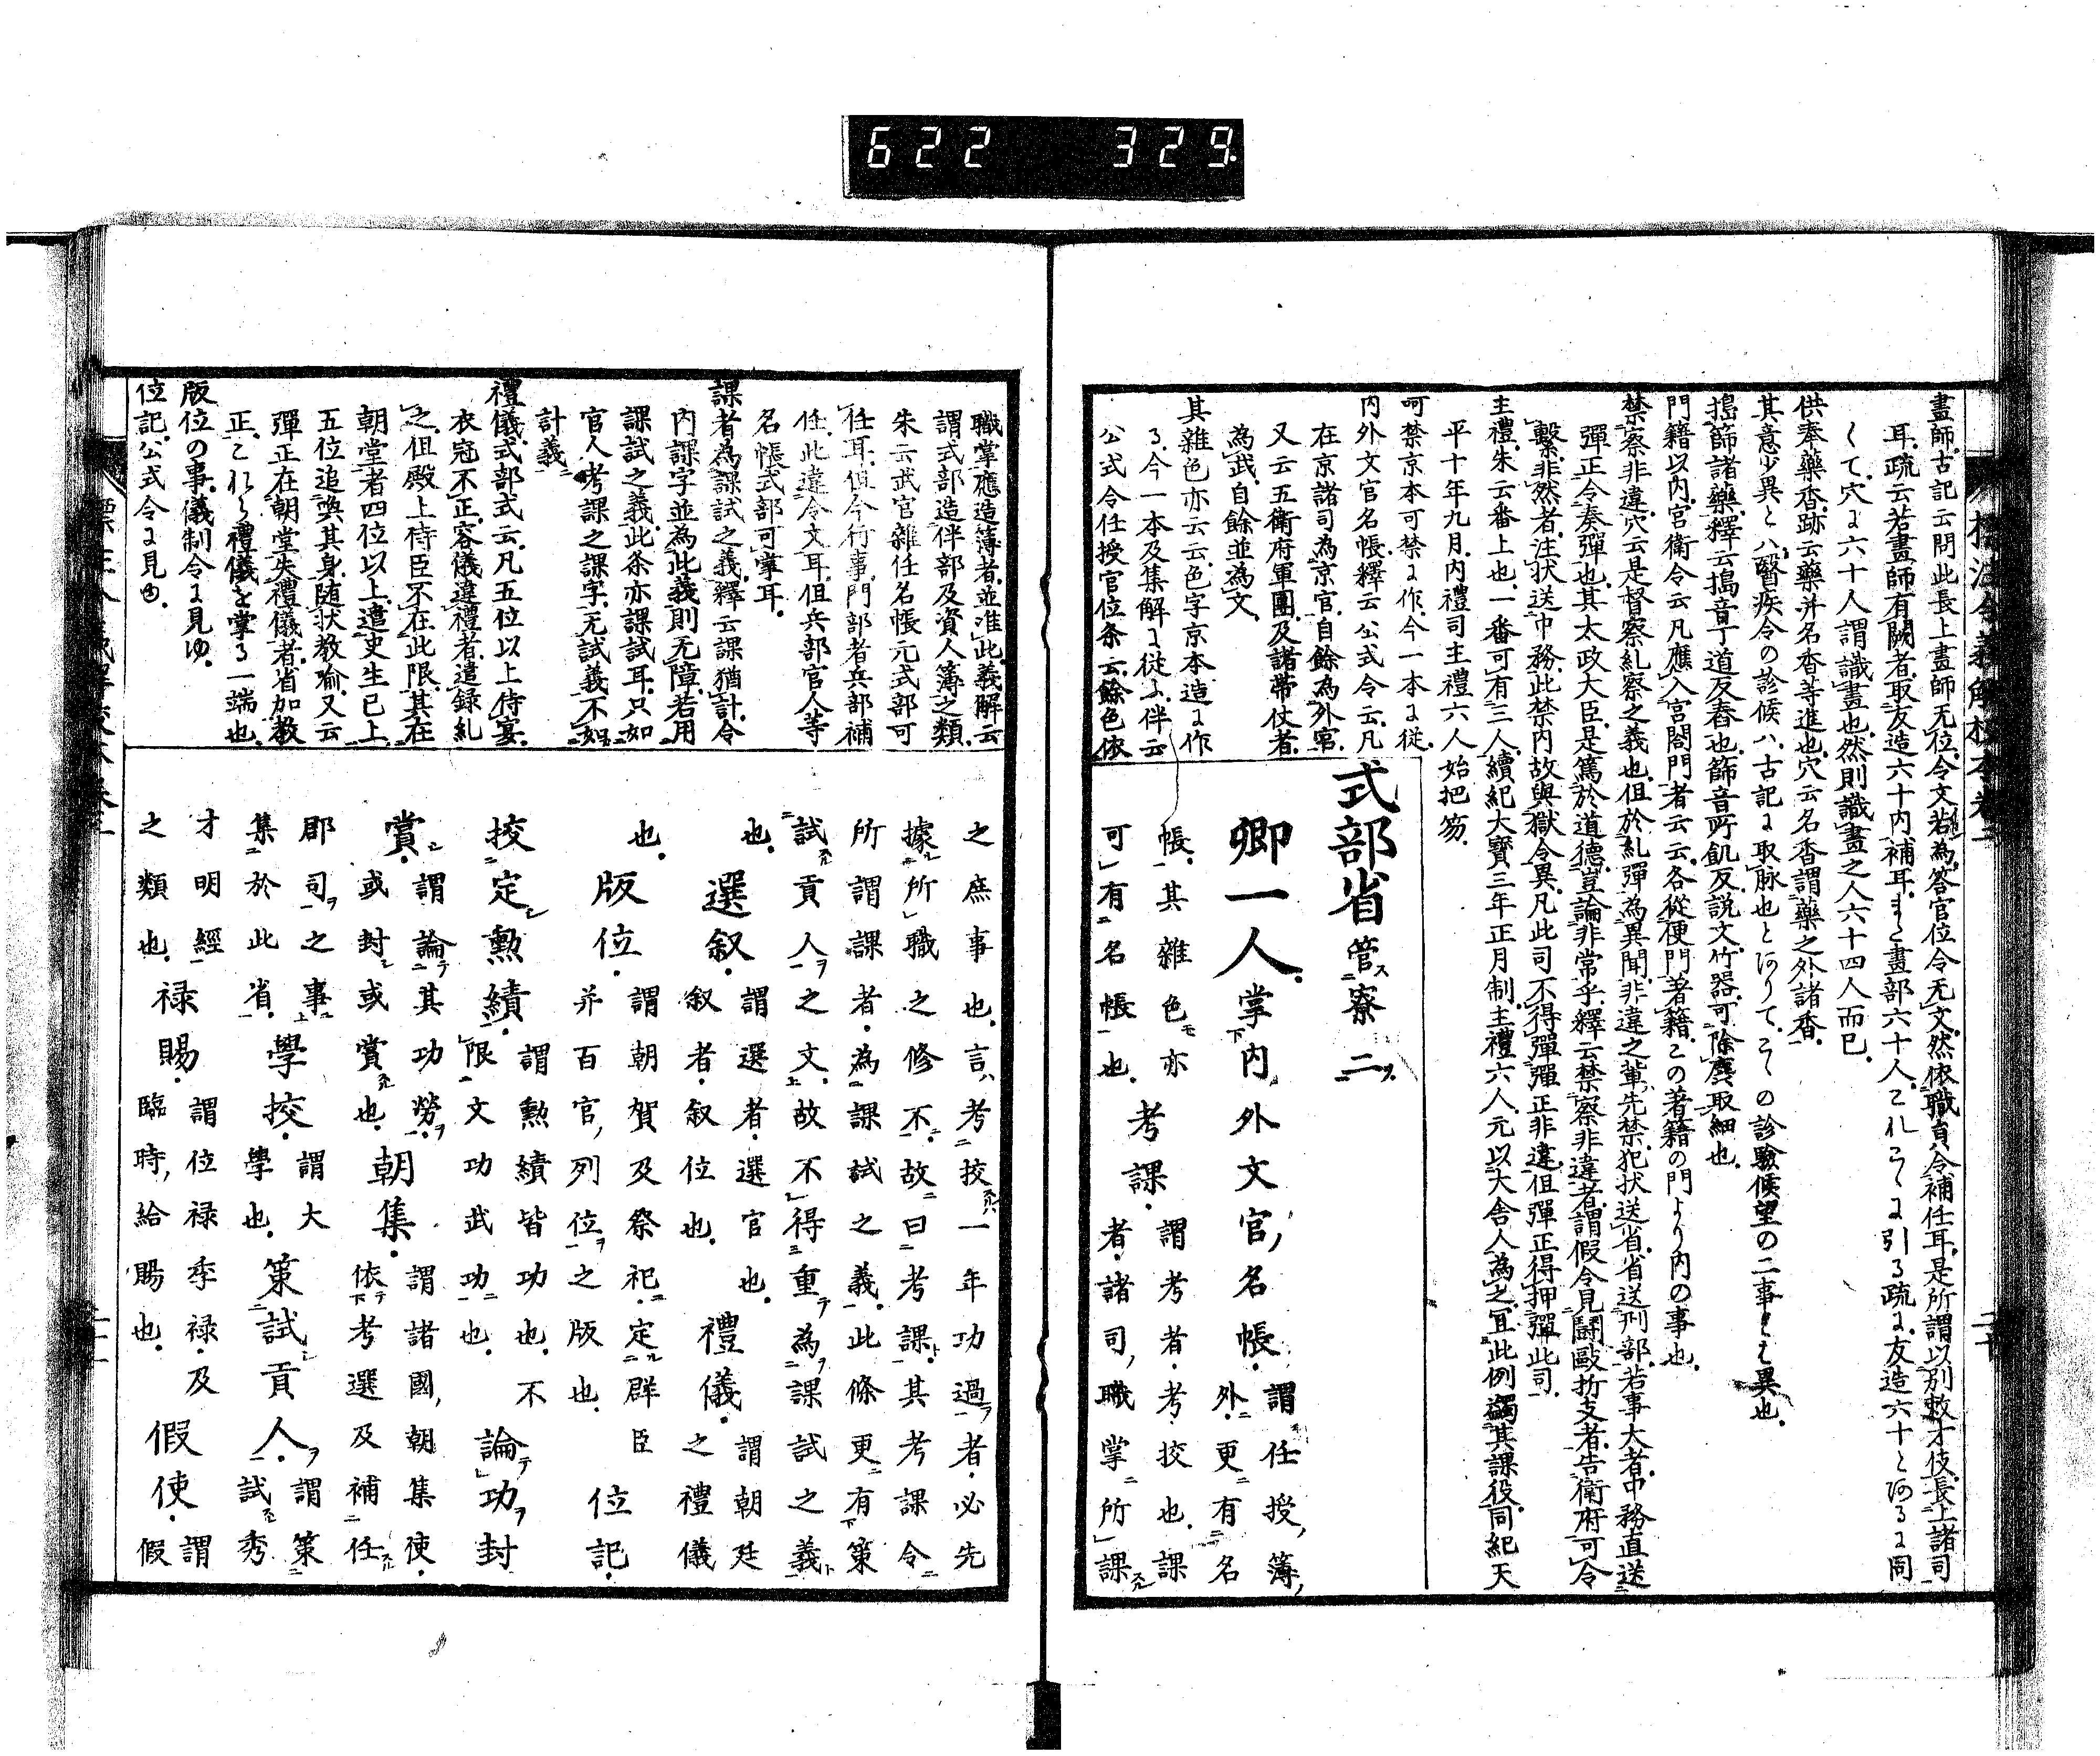 622 329
畫師、古記云問此長上畫師无位、令文若為、答官位令无文、然依職員令補任耳、是所謂以別敕才伎長上諸司
耳、疏云若畫師有闕者、取友造六十内補耳、また畫部六十人、これらに引る疏に、友造六十とあるに同
くて、穴に六十人謂識畫也、然則識畫之人六十四人而已、
供奉藥香、跡云藥并名香等進也、穴云名香謂藥之外諸香、
其意少異と八醫疾令の診候ハ、古記に取脉也とありて、こゝの診驗候望の二事とは異也、
搗篩諸藥、釋云搗音丁道反舂也、篩音所飢反、説文、竹器、可除麁取細也、
門籍以内、宮衛令云凡應入宮閤門者云云、各從便門著籍、この著籍の門より内の事也、
禁察非違、穴云是督察糺察之義也、但於糺彈為異聞、非違之輩、先禁、犯状送省、省送刑部、若事大者、中務直送
彈正、令奏彈也、其太政大臣、是篤於道德、豈論非常乎、釋云禁察非違者、謂假令見鬪毆折支者、告衛府可令
繋、非然者、注状送中務、此禁内故與獄令異、凡此司不得彈彈正非違、但彈正得押彈此司、
主禮、朱云番上也、一番可有三人、續紀大寶三年正月制、主禮六人、元以大舎人為之、冝此例蠲其課役、同紀天
平十年九月、内禮司主禮六人始把笏、
呵禁京本可禁に作、今一本に從、
内外文官名帳、釋云公式令云、凡
在京諸司為京官、自餘為外官、
又云五衛府軍團、及諸帶仗者、
為武、自餘並為文、
其雜色亦云云、色字京本造に作
る、今一本及集解に從ふ、伴云
公式令任授官位条云、餘色依
式部省 管寮二
卿一人、掌内外文官、名帳、謂任授、簿、
外、更有名
帳、其雜色亦
可有名帳也、
考課、謂考者、考挍也、課
者、諸司、職掌所課
職掌應造簿者、並准此、義解云
謂式部造伴部及資人簿之類、
朱云武官雜任名帳元式部可
任耳、但今行事、門部者兵部補
任、此違令文耳、但兵部官人等
名帳式部可掌耳、
課者為課試之義、釋云課猶計、令
内課字並為此義則无障、若用
課試之義、此条亦課試耳、只如
官人考課之課字、无試義、不如
計義、
禮儀、式部式云、凡五位以上侍宴、
衣冠不正、容儀違禮者、遣録糺
之、但殿上侍臣不在此限、其在
朝堂者四位以上、遣史生已上、
五位追喚其身、随状教喩、又云
彈正在朝堂失禮儀者、省加教
正、これら禮儀を掌る一端也、
版位の事、儀制令に見ゆ、
位記、公式令に見ゆ、
之庶事也、言、考挍一年功過者、必先
據所職之修不、故曰考課、其考課令
所謂課者、為課試之義、此條更有策
試貢人之文、故不得重為課試之義
也、選叙、謂選者、選官也、
叙者、叙位也、禮儀、謂朝廷
之禮儀
也、版位、謂朝賀及祭祀、定群臣
并百官、列位之版也、位記、
挍定勲績、謂勲績皆功也、不
限文功武功也、論功封
賞、謂論其功勞、
或封或賞也、朝集、謂諸國、朝集使、
依考選及補任
郡司之事、
集於此省、學挍、謂大
學也、策試貢人、謂策
試秀
才明經
之類也、禄賜、謂位禄季禄、及
臨時、給賜也、假使、謂
假